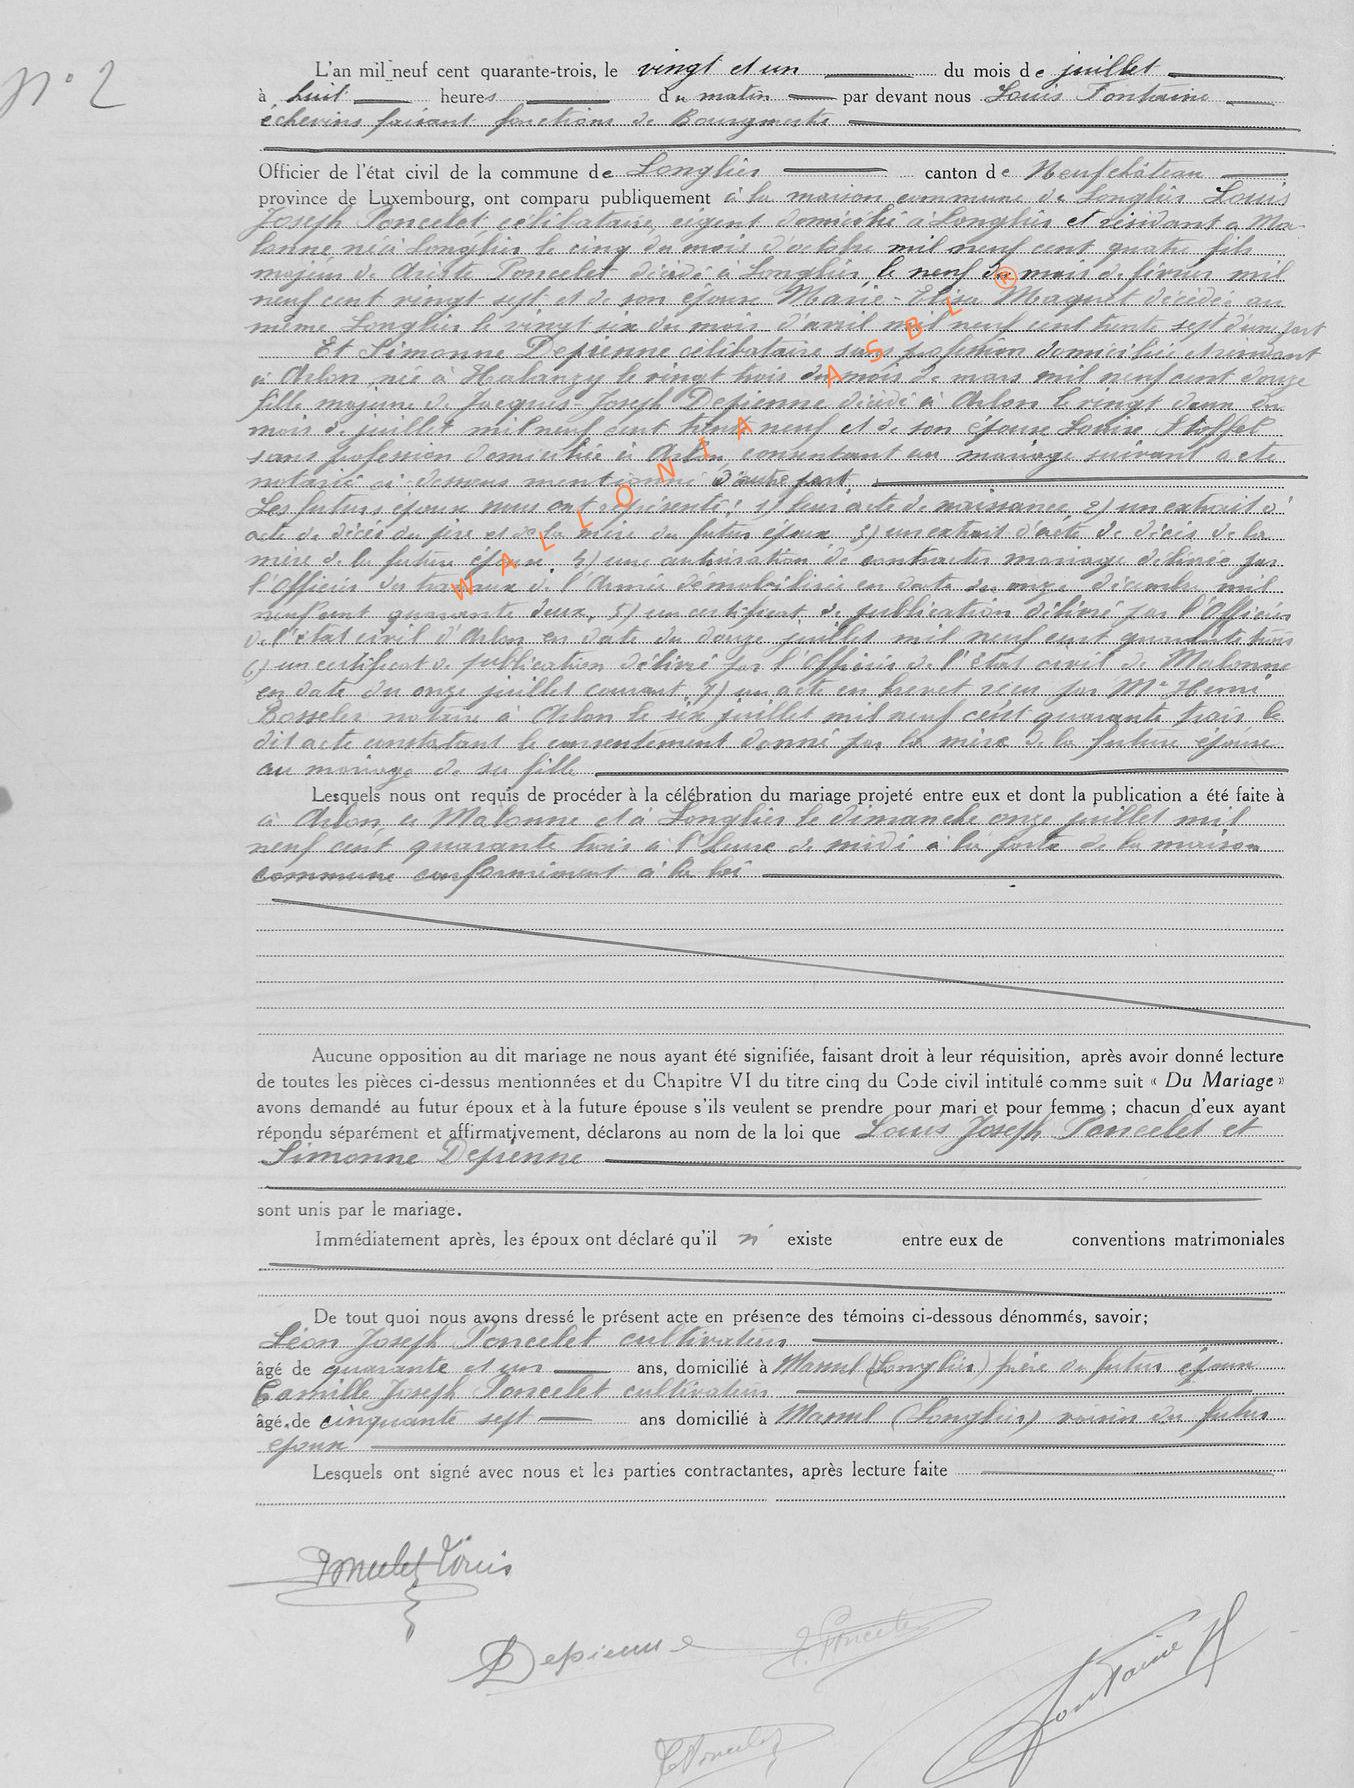 N° 2
L'an mil neuf cent quarante-trois, le vingt et un du mois de juillet
à huit heures du matin par devant nous Louis Fontaine
échevins faisant fonctions de Bourgmestre
Officier de l'état civil de la commune de Longlier canton de Neufchâteau
province de Luxembourg, ont comparu publiquement à la maison commune de Longlier Louis
Joseph Poncelet, célibataire, domicilié à Longlier et résidant à Ma-
lonne, né à Longlier le cinq du mois d'octobre mil neuf cent quatre fils
majeur de Poncelet décédé à Longlier, le neuf du mois de février mil
neuf cent vingt sept et de son épouse Marie-Elisa Maquet décédée au
même Longlier le vingt six du mois d'avril mil neuf cent trente sept d'une part
Et Simonne Depienne célibataire sans profession domiciliée et résidant
à Arlon, née à Halanzy le vingt trois du mois de mars mil neuf cent douze
fille majeure de Jacques-Joseph Depienne décédé à Arlon le vingt deux du
mois de juillet mil neuf cent trente neuf et de son épouse Louise Stoffel
sans profession domiciliée à Arlon, consentant au mariage suivant acte
notarié ci-dessous mentionné d'autre part
Les futurs époux nous ont représenté: 1) leur acte de naissance, 2) un extrait d'
acte de décès du père et de la mère du futur époux 3) un extrait d'acte de décès de la
mère de la future épouse. 4) une autorisation de contracter mariage délivrée par
l'Officier des travaux de l'Armée démobilisée en date du onze décembre mil
neuf cent quarante deux, 5) un certificat de publication délivré par l'Officier
de l'état civil d'Arlon en date du douze juillet mil neuf cent quarante trois
6) un certificat de publication délivré par l'Officier de l'Etat civil de Malonne
en date du onze juillet courant, 7) un acte en brevet reçu par Me Henri
Bosseler notaire à Arlon le six juillet mil neuf cent quarante trois le
dit acte constatant le consentement donné par la mère de la future épouse
au mariage de sa fille
Lesquels nous ont requis de procéder à la célébration du mariage projeté entre eux et dont la publication a été faite à
à Arlon, à Malonne et à Longlier le dimanche onze juillet mil
neuf cent quarante trois à l'heure de midi à la porte de la maison
commune conformément à la loi
Aucune opposition au dit mariage ne nous ayant été signifiée, faisant droit à leur réquisition, après avoir donné lecture
de toutes les pièces ci-dessus mentionnées et du Chapitre VI du titre cinq du Code civil intitulé comme suit « Du Mariage »
avons demandé au futur époux et à la future épouse s'ils veulent se prendre pour mari et pour femme ; chacun d'eux ayant
répondu séparément et affirmativement, déclarons au nom de la loi que Louis Joseph Poncelet et
Simonne Depienne
sont unis par le mariage.
Immédiatement après, les époux ont déclaré qu'il n' existe entre eux de conventions matrimoniales
De tout quoi nous avons dressé le présent acte en présence des témoins ci-dessous dénommés, savoir;
Léon Joseph Poncelet cultivateur
âgé de quarante et un ans, domicilié à Massul (Longlier) frère du futur époux
Camille Joseph Poncelet cultivateur
âgé de cinquante sept ans domicilié à Massul (Longlier) voisin du futur
époux
Lesquels ont signé avec nous et les parties contractantes, après lecture faite
Poncelet Louis
Depienne
L. Poncelet
Fontaine
C. Poncelet
WALLONIA ASBL ®